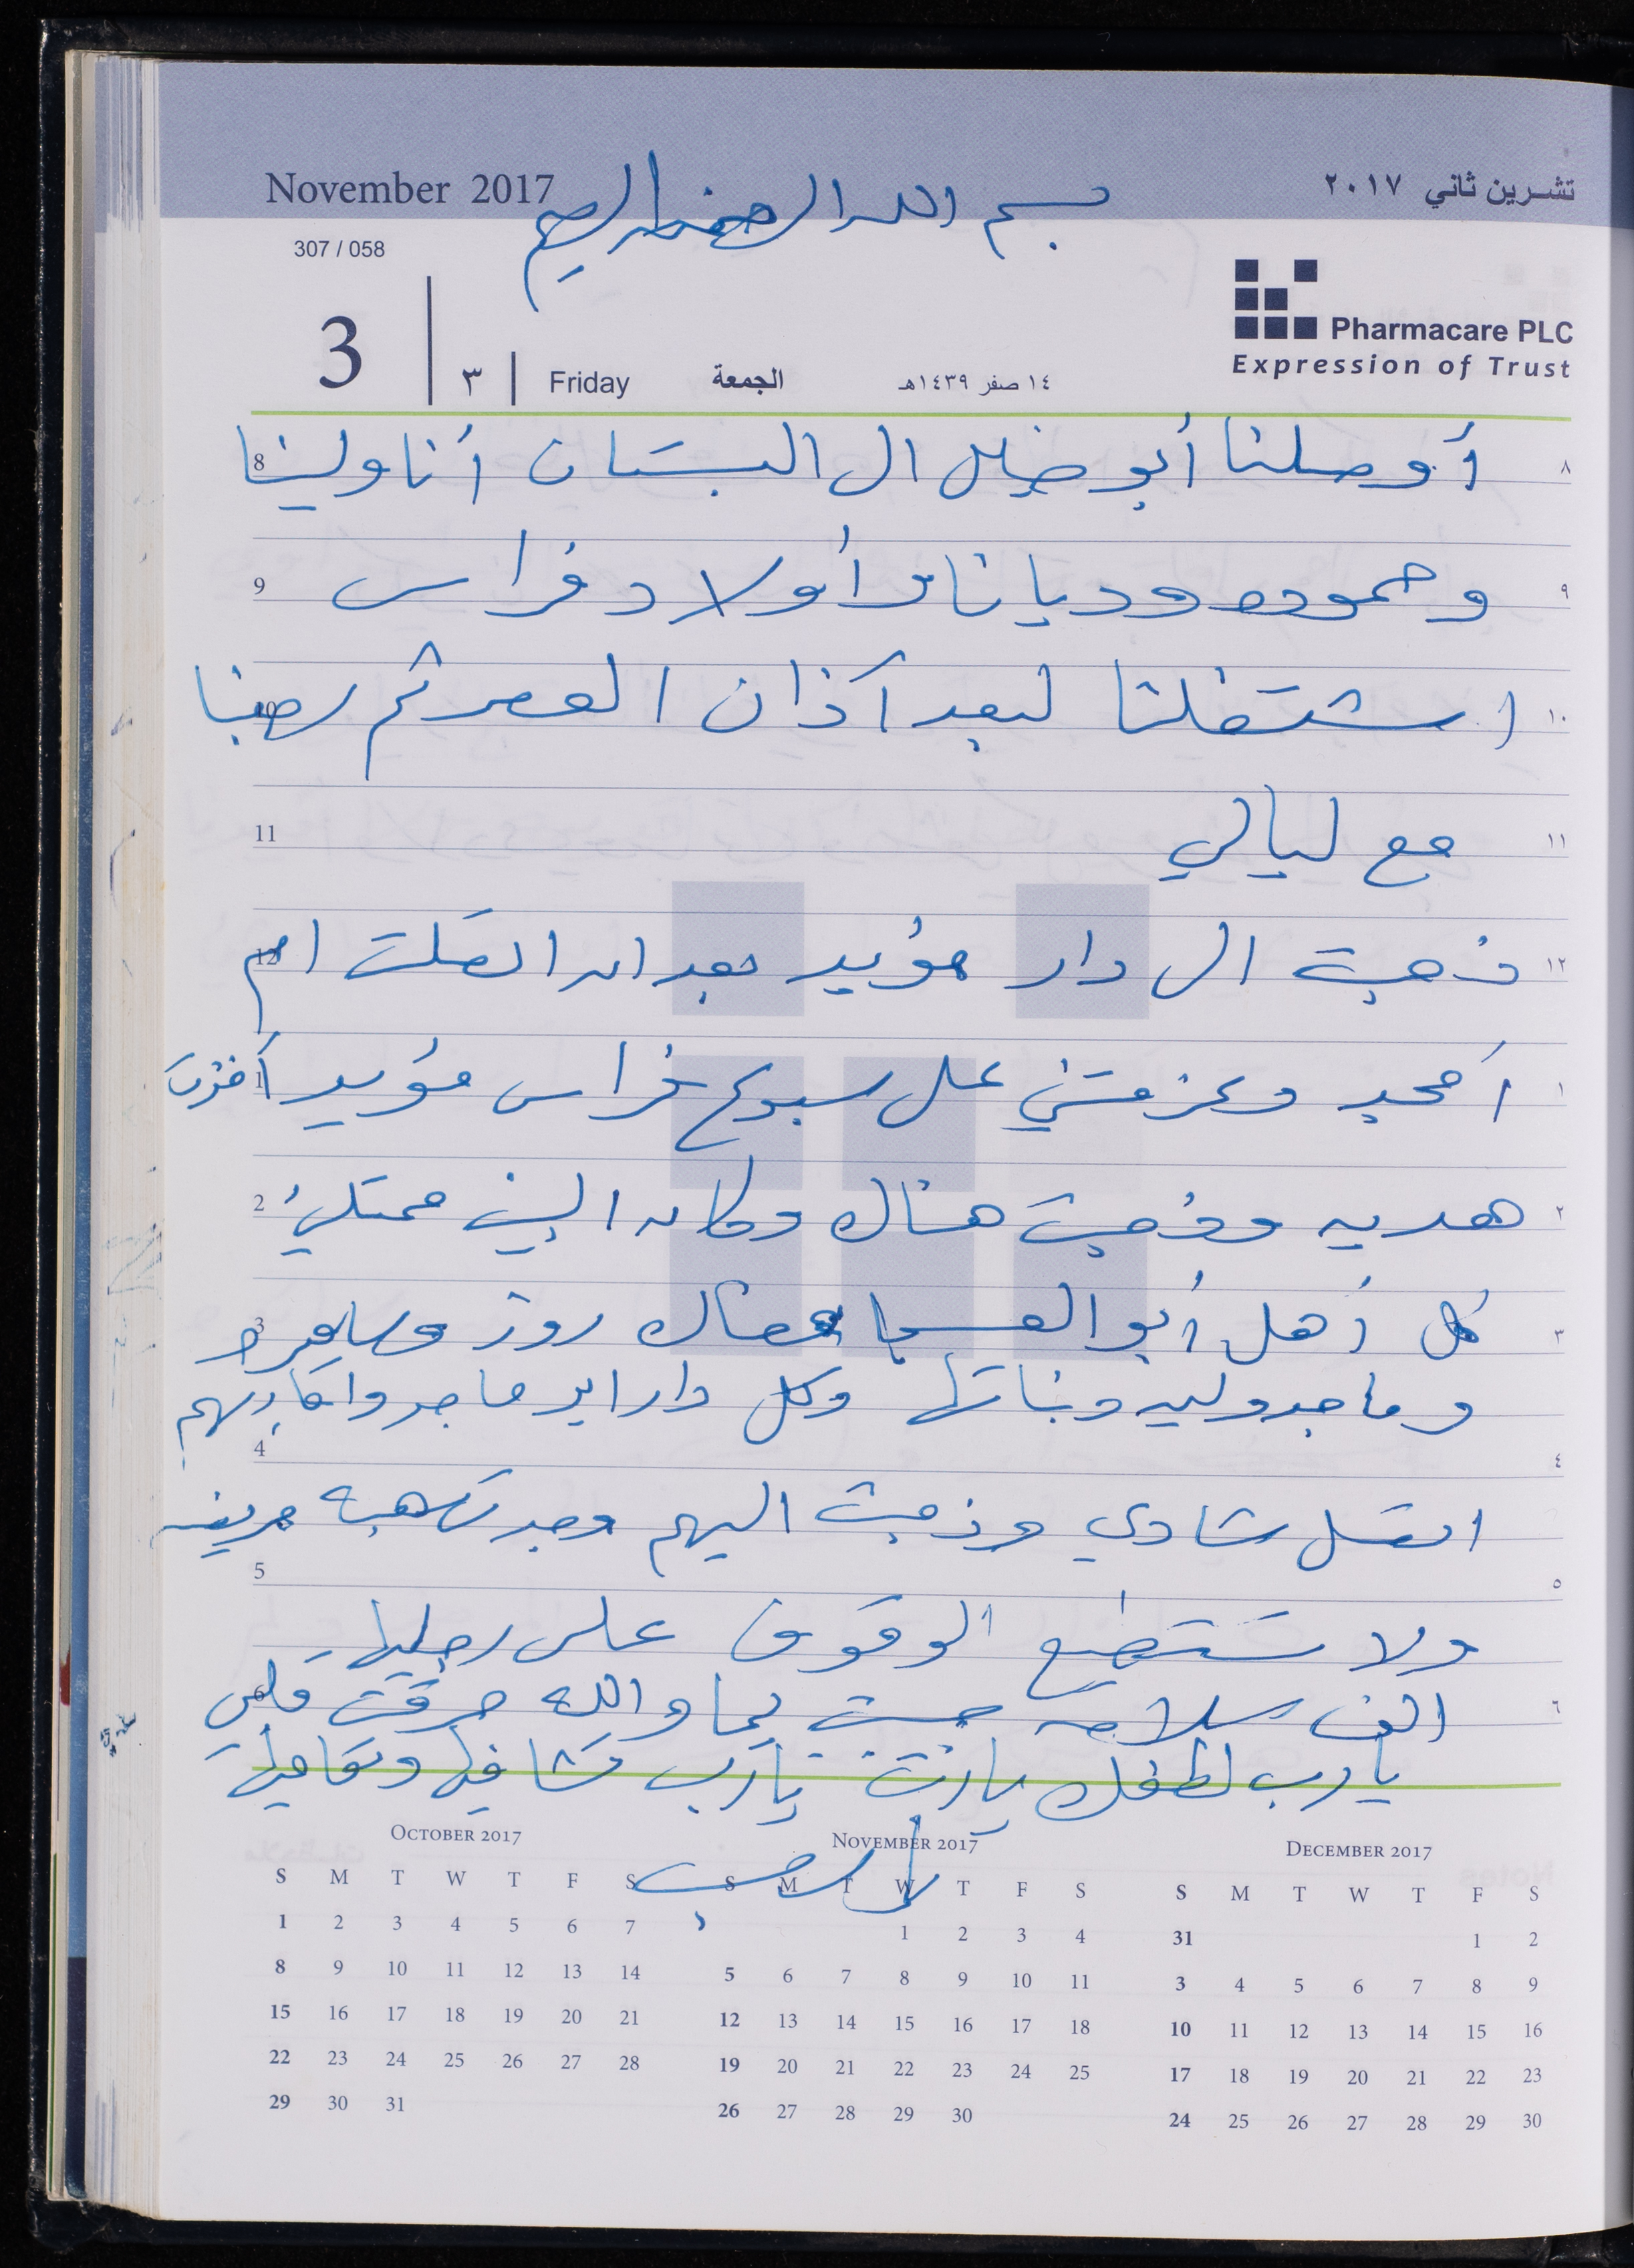 November 2017
تشـرين ثاني ٢٠١٧
بسم الله الرحمن الرحيم
307 / 058
Pharmacare PLC
Expression of Trust
3 ٣ Friday الجمعة ١٤ صفر ١٤٣٩هـ
8 أوصلنا أبو خليل الى البستان أنا ولينا ٨
9 وحموده وديانا وأولاد فراس ٩
10 اشتغلنا لبعد آذان العصر ثم رحبنا ١٠
11 مع ليالي ١١
12 ذهبت الى دار مؤيد بعد ان اتصلت ام ١٢
1 أمجد وعزمتني على سبوع فراس مؤيد أخذت ١
2 هديه وذهبت هناك وكان البيت ممتلئ ٢
3 كل أهل أبو العسـا هناك روز وساهره ٣
وماجدوليه وبناتها وكل دار ابو ماجد واقاربهم
4 ٤
اتصل شادي وذهبت اليهم وجدت هبه مريضه
5 ٥
ولا تستطيع الوقوف على رجليها
6 الف سلامه حبيبت يما والله حرقت قلبي ٦
يا رب لطفك يا رب يا رب تشافيها وتعافيها
يا رب
October 2017
S M T W T F S
1 2 3 4 5 6 7
8 9 10 11 12 13 14
15 16 17 18 19 20 21
22 23 24 25 26 27 28
29 30 31
November 2017
S M T W T F S
1 2 3 4
5 6 7 8 9 10 11
12 13 14 15 16 17 18
19 20 21 22 23 24 25
26 27 28 29 30
December 2017
S M T W T F S
31 1 2
3 4 5 6 7 8 9
10 11 12 13 14 15 16
17 18 19 20 21 22 23
24 25 26 27 28 29 30